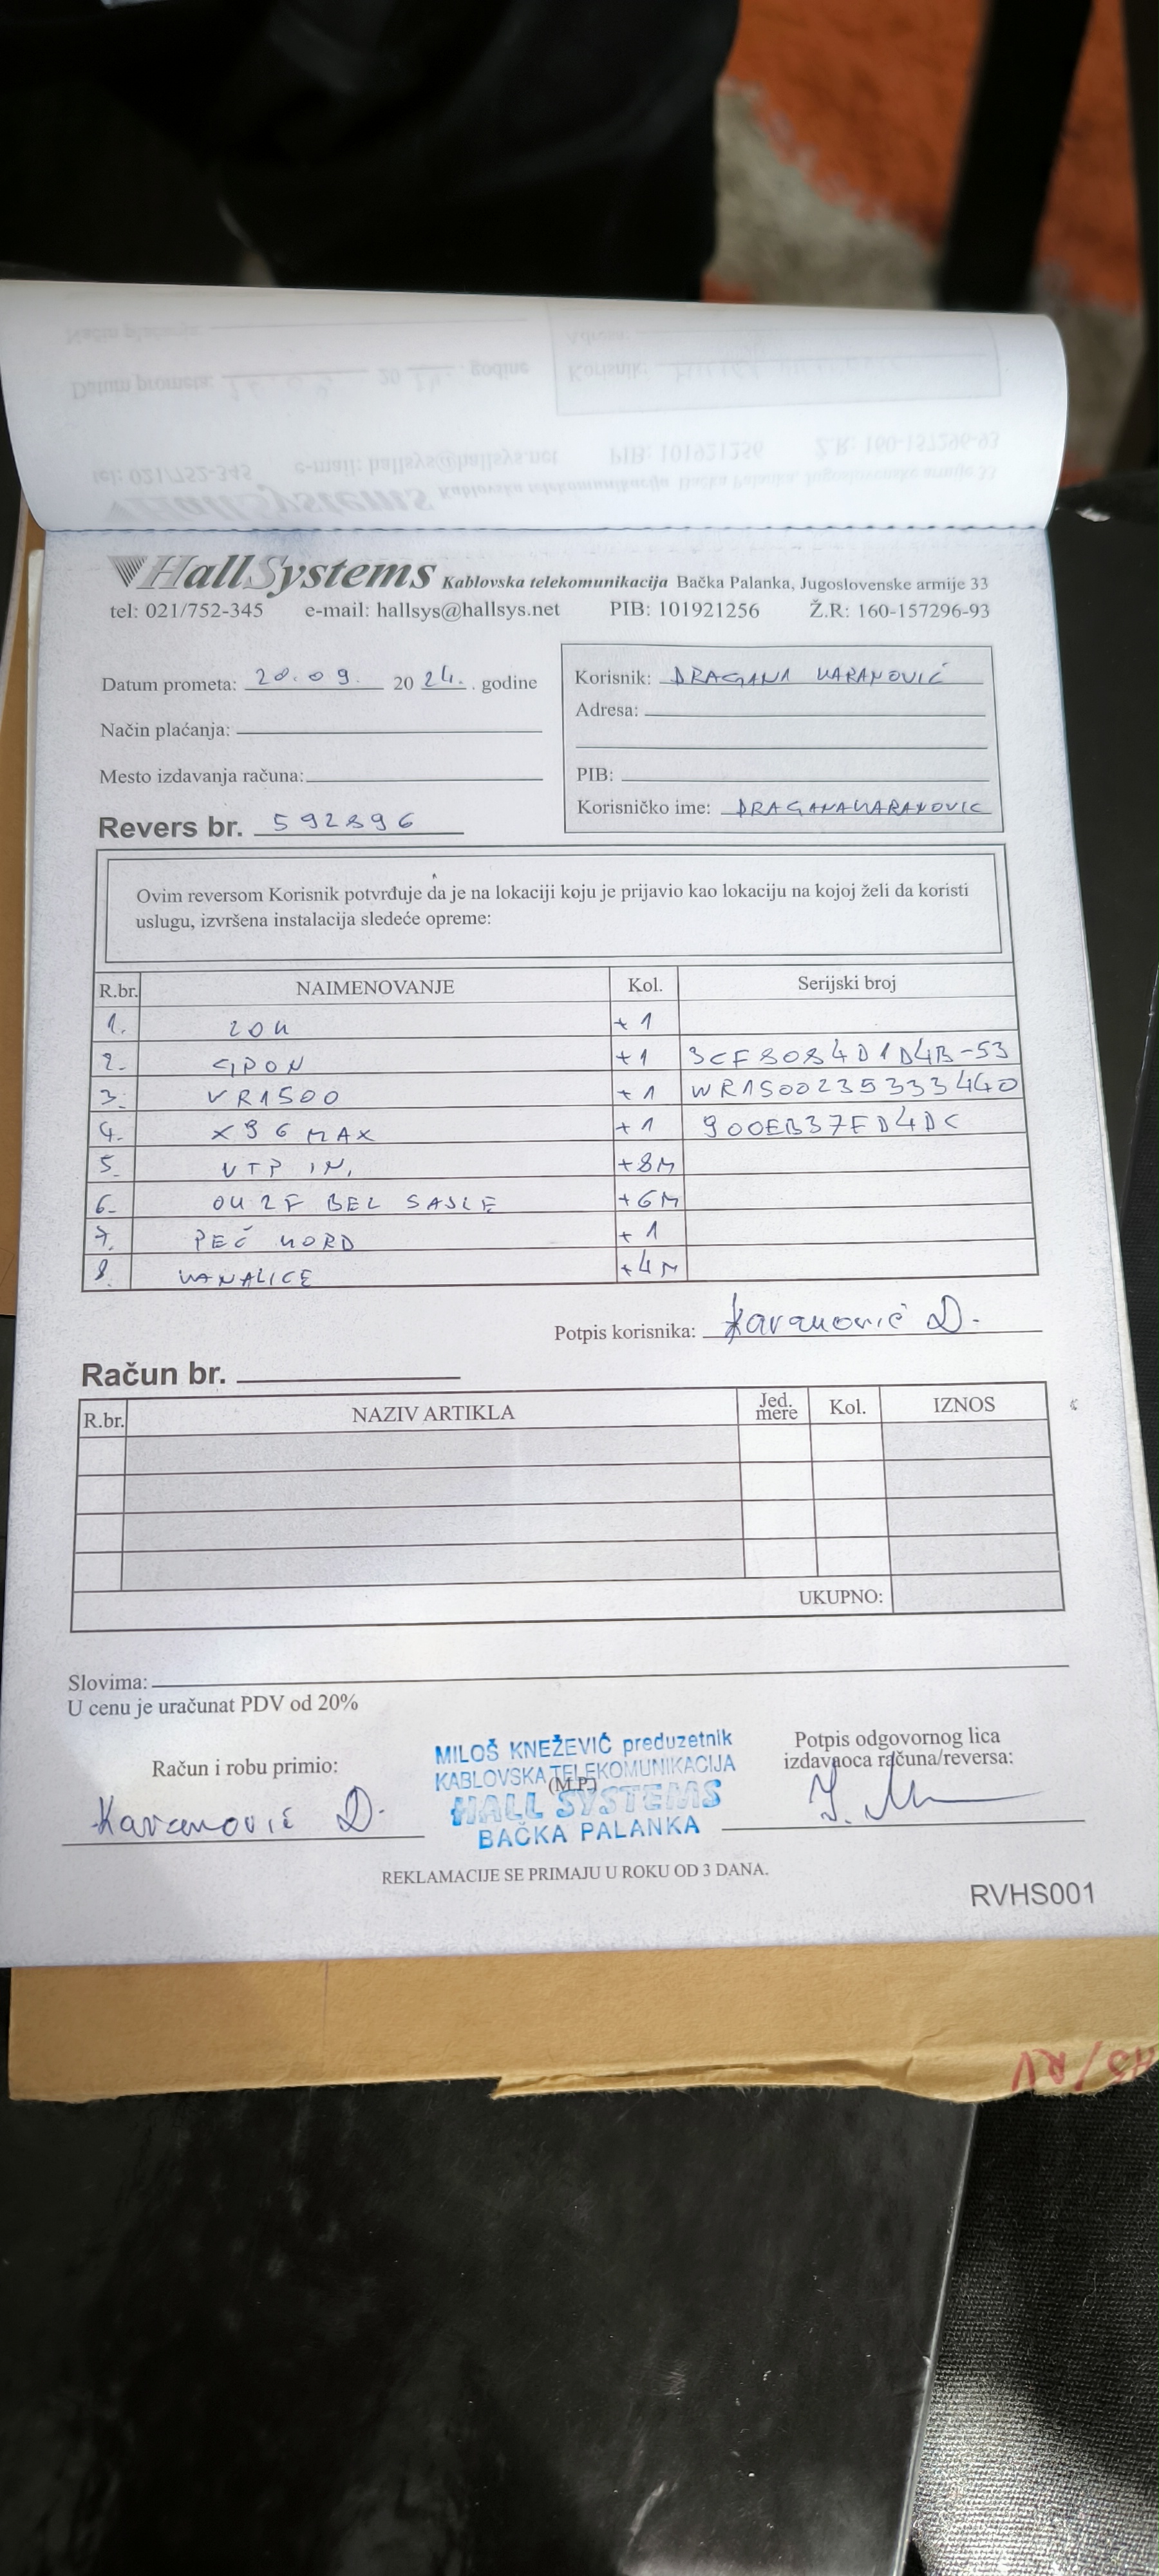 HallSystems Kablovska telekomunikacija Bačka Palanka, Jugoslovenske armije 33
tel: 021/752-345 e-mail: hallsys@hallsys.net PIB: 101921256 Ž.R: 160-157296-93
Datum prometa: 20.09. 20 24. . godine
Način plaćanja:
Mesto izdavanja računa:
Revers br. 592896
Korisnik: DRAGANA KARANOVIĆ
Adresa:
PIB:
Korisničko ime: DRAGANAKARANOVIC
Ovim reversom Korisnik potvrđuje da je na lokaciji koju je prijavio kao lokaciju na kojoj želi da koristi
uslugu, izvršena instalacija sledeće opreme:
R.br. NAIMENOVANJE Kol. Serijski broj
1. ZOK +1
2. GPON +1 3CF8084D1D4B-53
3. VR1500 +1 WR1500235333440
4. X96 MAX +1 900EB37FD4DC
5. UTP IN. +8M
6. OK 2F BEZ SAJLE +6M
7. PEČ KORD +1
8. KANALICE +4M
Potpis korisnika: Karanović D.
Račun br.
R.br. NAZIV ARTIKLA Jed. mere Kol. IZNOS
UKUPNO:
Slovima:
U cenu je uračunat PDV od 20%
Račun i robu primio:
Karanović D.
MILOŠ KNEŽEVIĆ preduzetnik
KABLOVSKA TELEKOMUNIKACIJA
(M.P.)
HALL SYSTEMS
BAČKA PALANKA
Potpis odgovornog lica
izdavaoca računa/reversa:
REKLAMACIJE SE PRIMAJU U ROKU OD 3 DANA.
RVHS001